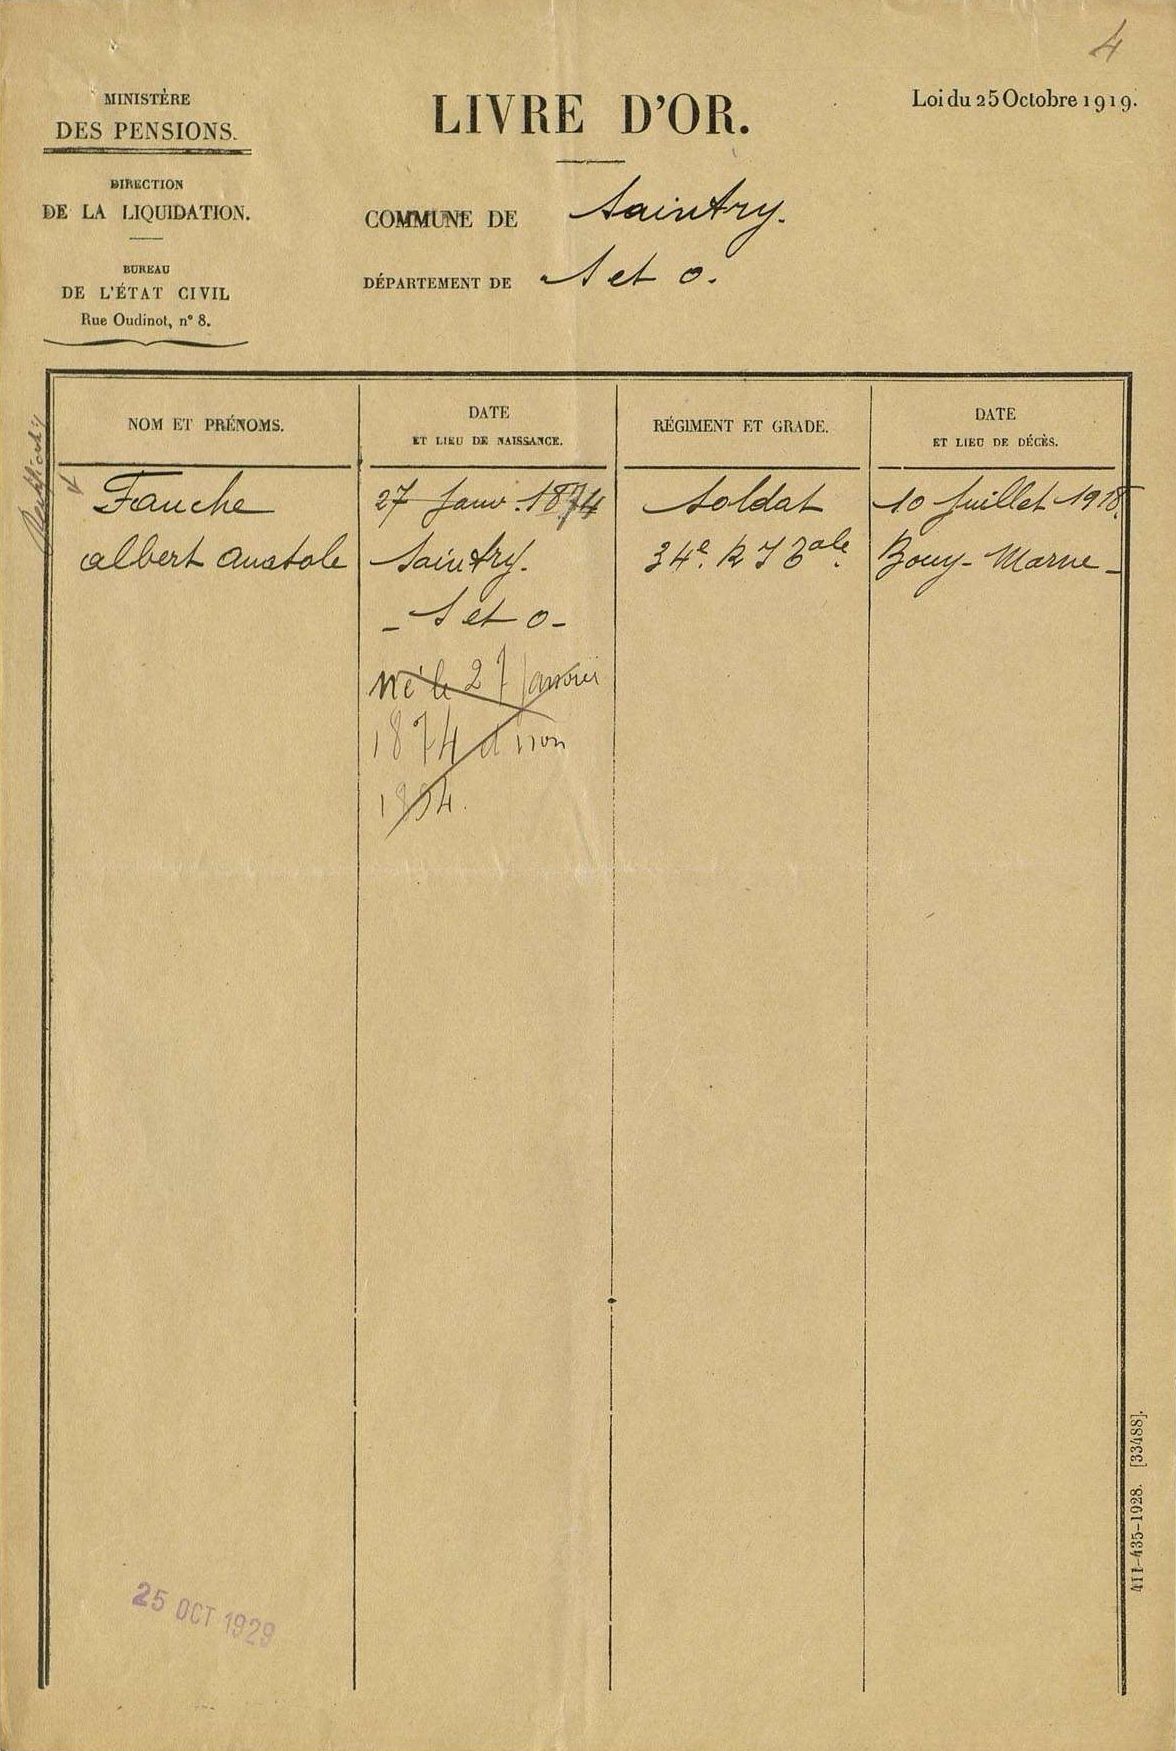 4
MINISTÈRE
DES PENSIONS.
DIRECTION
DE LA LIQUIDATION.
BUREAU
DE L'ÉTAT CIVIL
Rue Oudinot, n° 8.
LIVRE D'OR.
Loi du 25 Octobre 1919.
COMMUNE DE Saintry.
DÉPARTEMENT DE S et O.
NOM ET PRÉNOMS.
DATE
ET LIEU DE NAISSANCE.
RÉGIMENT ET GRADE.
DATE
ET LIEU DE DÉCÈS.
Fauche
albert anatole
27 Janv. 1874
Saintry.
- S et O -
né le 27 janvier
1874 et non
1894.
Soldat
34e. R I Cale.
10 Juillet 1918.
Bouy - Marne -
25 OCT 1929
411-435-1928. [33488].